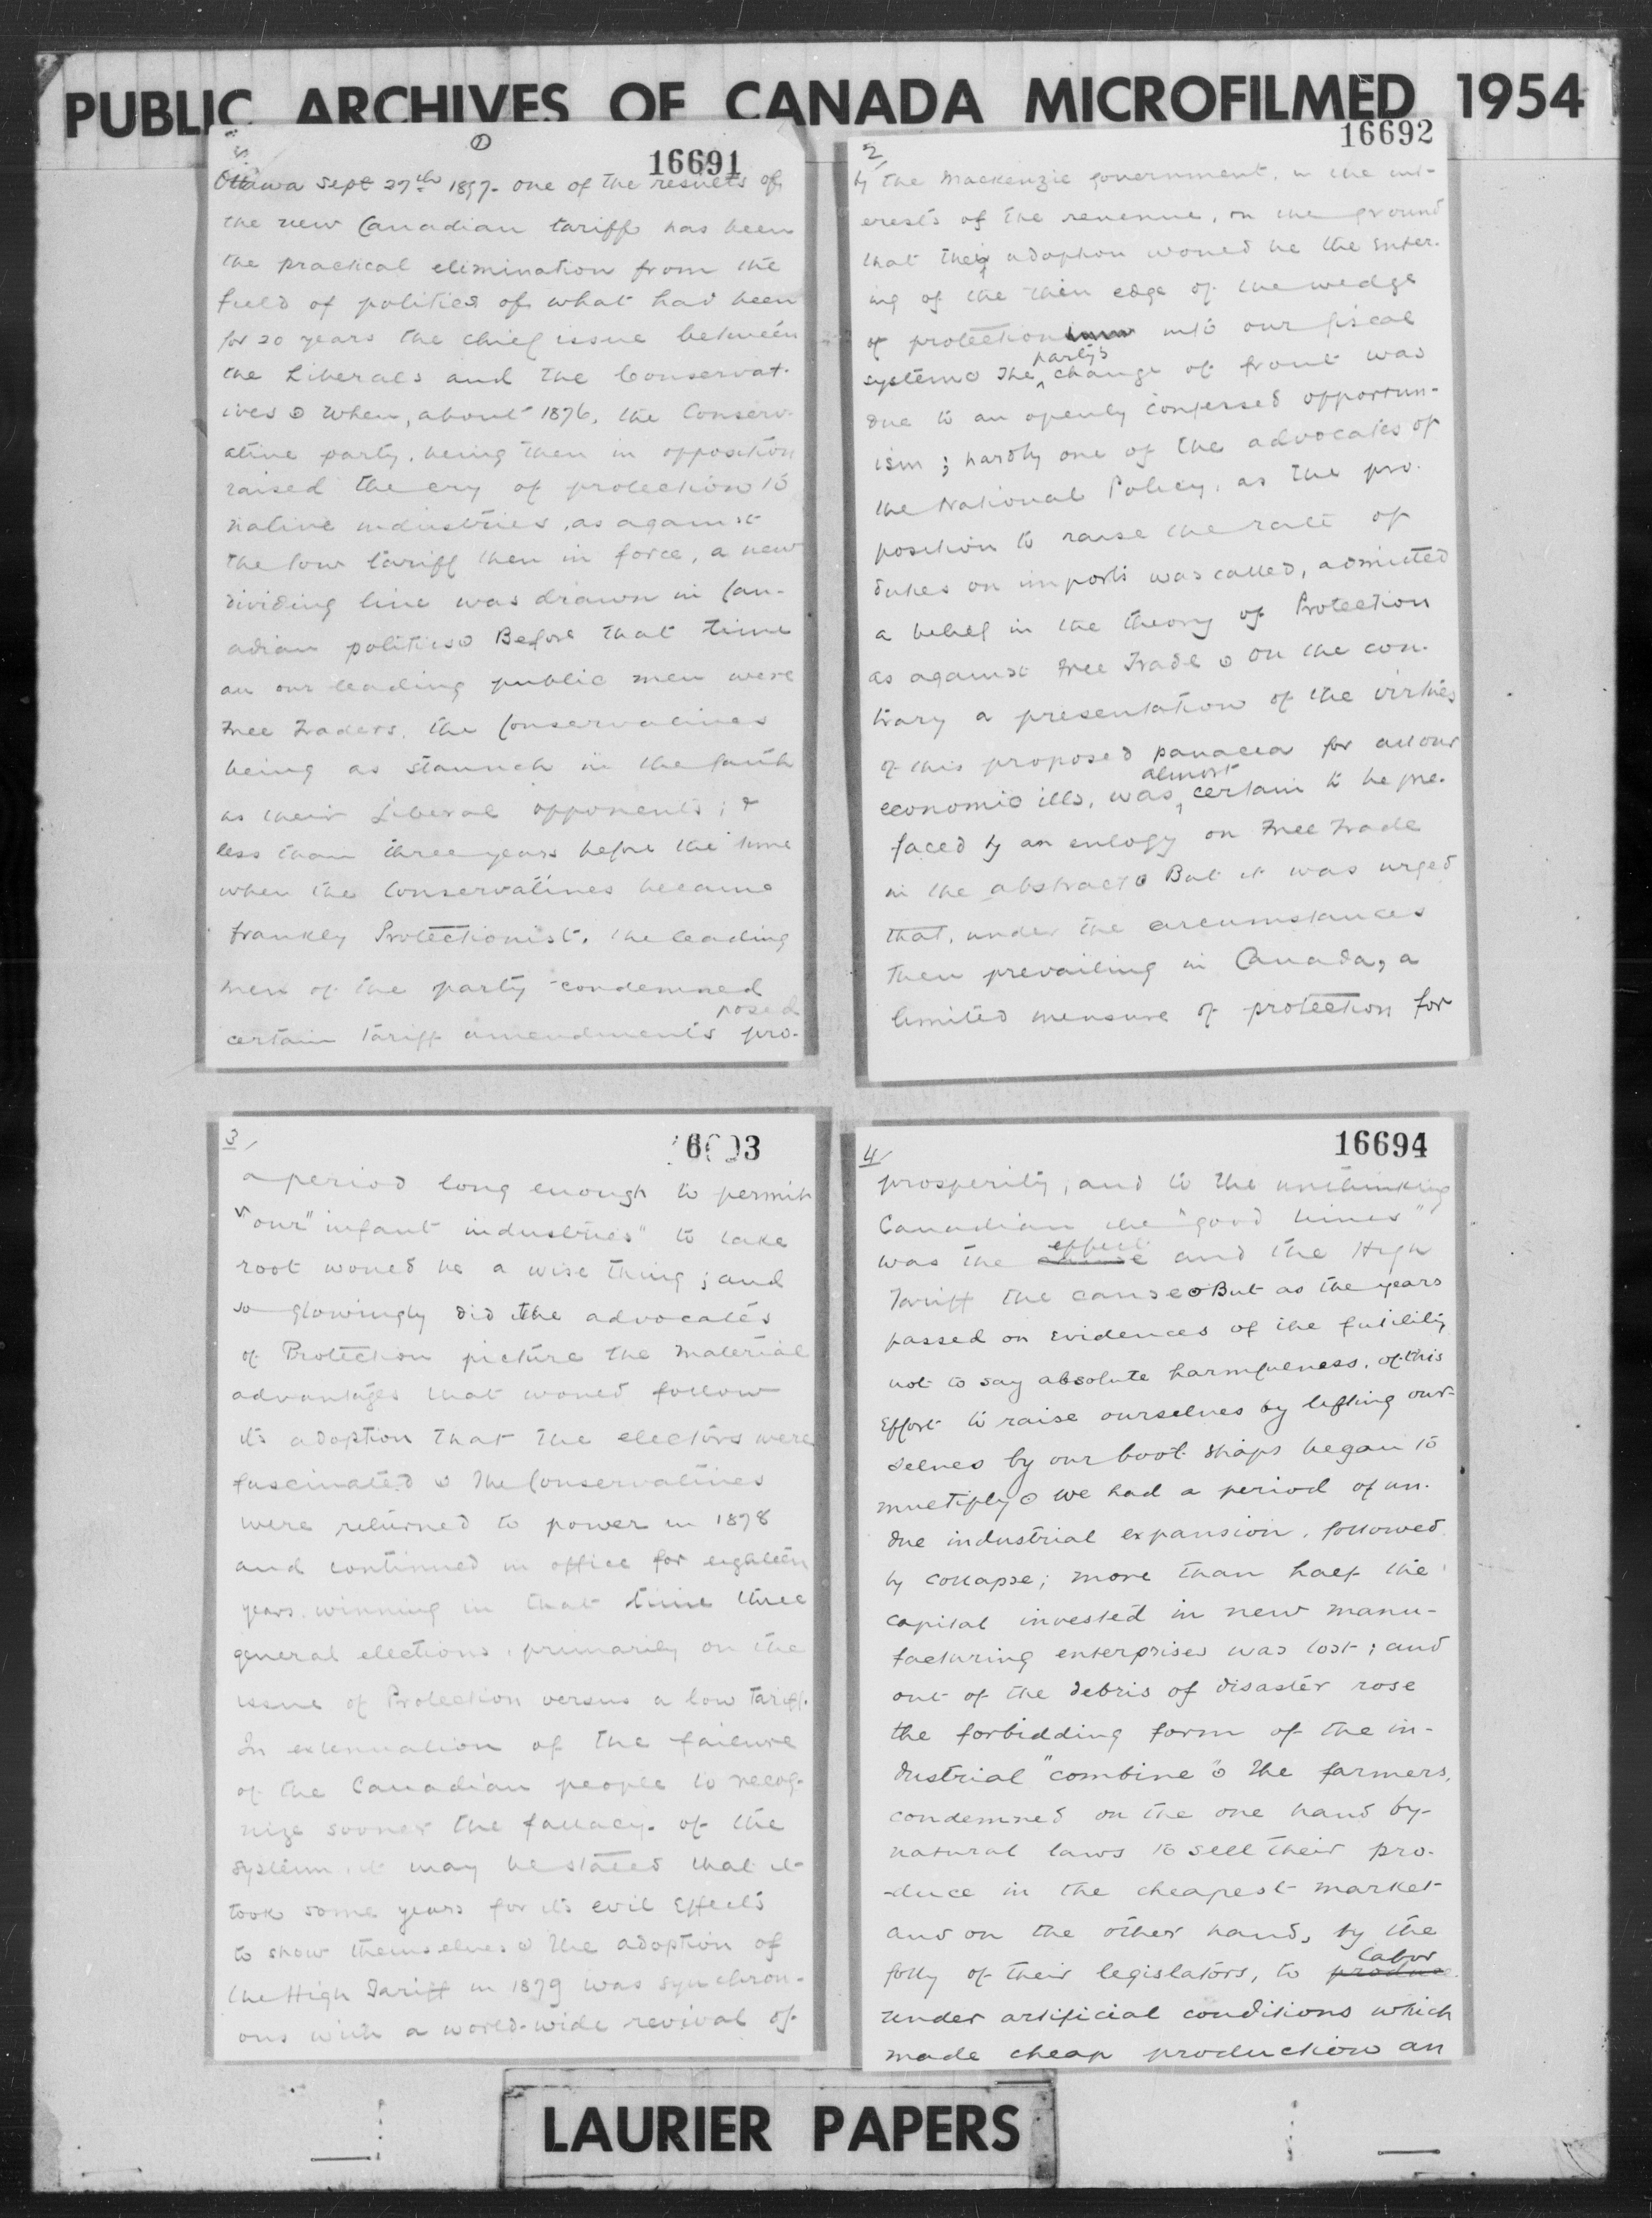 PUBLIC ARCHIVES OF CANADA MICROFILMED 1954
1
16691
Ottawa Sept 27th 1897. One of the results of
the new Canadian tariff has been
the practical elimination from the
field of politics of what had been
for 20 years the chief issue between
the Liberals and the Conservat-
ives. When, about 1876, the Conserv-
ative party, being then in opposition
raised the cry of protection to
native industries, as against
the low tariff then in force, a new
dividing line was drawn in Can-
adian politics. Before that time
all our leading public men were
Free Traders, the Conservatives
being as staunch in the faith
as their Liberal opponents; &
less than three years before the time
when the Conservatives became
frankly Protectionist, the leading
men of the party condemned
certain tariff amendments pro-
posed
16692
2
by the Mackenzie government, in the int-
erests of the revenue, on the ground
that their adoption would be the enter-
ing of the thin edge of the wedge
of protection into our fiscal
system. The party's change of front was
due to an openly confessed opportun-
ism; hardly one of the advocates of
the National Policy, as the pro-
position to raise the rate of
duties on imports was called, admitted
a belief in the theory of Protection
as against Free Trade. On the con-
trary a presentation of the virtues
of this proposed panacea for all our
economic ills, was almost certain to be pre-
faced by an eulogy on Free Trade
in the abstract. But it was urged
that, under the circumstances
then prevailing in Canada, a
limited measure of protection for
3
a period long enough to permit
"our "infant industries" to take
root would be a wise thing; and
so glowingly did the advocates
of Protection picture the material
advantages that would follow
its adoption that the electors were
fascinated. The Conservatives
were returned to power in 1878
and continued in office for eighteen
years, winning in that time three
general elections, primarily on the
issue of Protection versus a low tariff.
In extenuation of the failure
of the Canadian people to recog-
nize sooner the fallacy of the
system, it may be stated that it
took some years for its evil effects
to show themselves. The adoption of
the High Tariff in 1879 was synchron-
ous with a world-wide revival of
16694
4
prosperity, and to the unthinking
Canadian the "good times"
was the effect and the High
Tariff the cause. But as the years
passed on evidences of the futility
not to say absolute harmfulness, of this
effort to raise ourselves by lifting our-
selves by our boot straps began to
multiply. We had a period of un-
due industrial expansion, followed
by collapse; more than half the
capital invested in new manu-
facturing enterprises was lost; and
out of the debris of disaster rose
the forbidding form of the in-
dustrial "combine". The farmers,
condemned on the one hand by
natural laws to sell their pro-
-duce in the cheapest market
and on the other hand, by the
folly of their legislators, to produce labor
under artificial conditions which
made cheap production an
LAURIER PAPERS